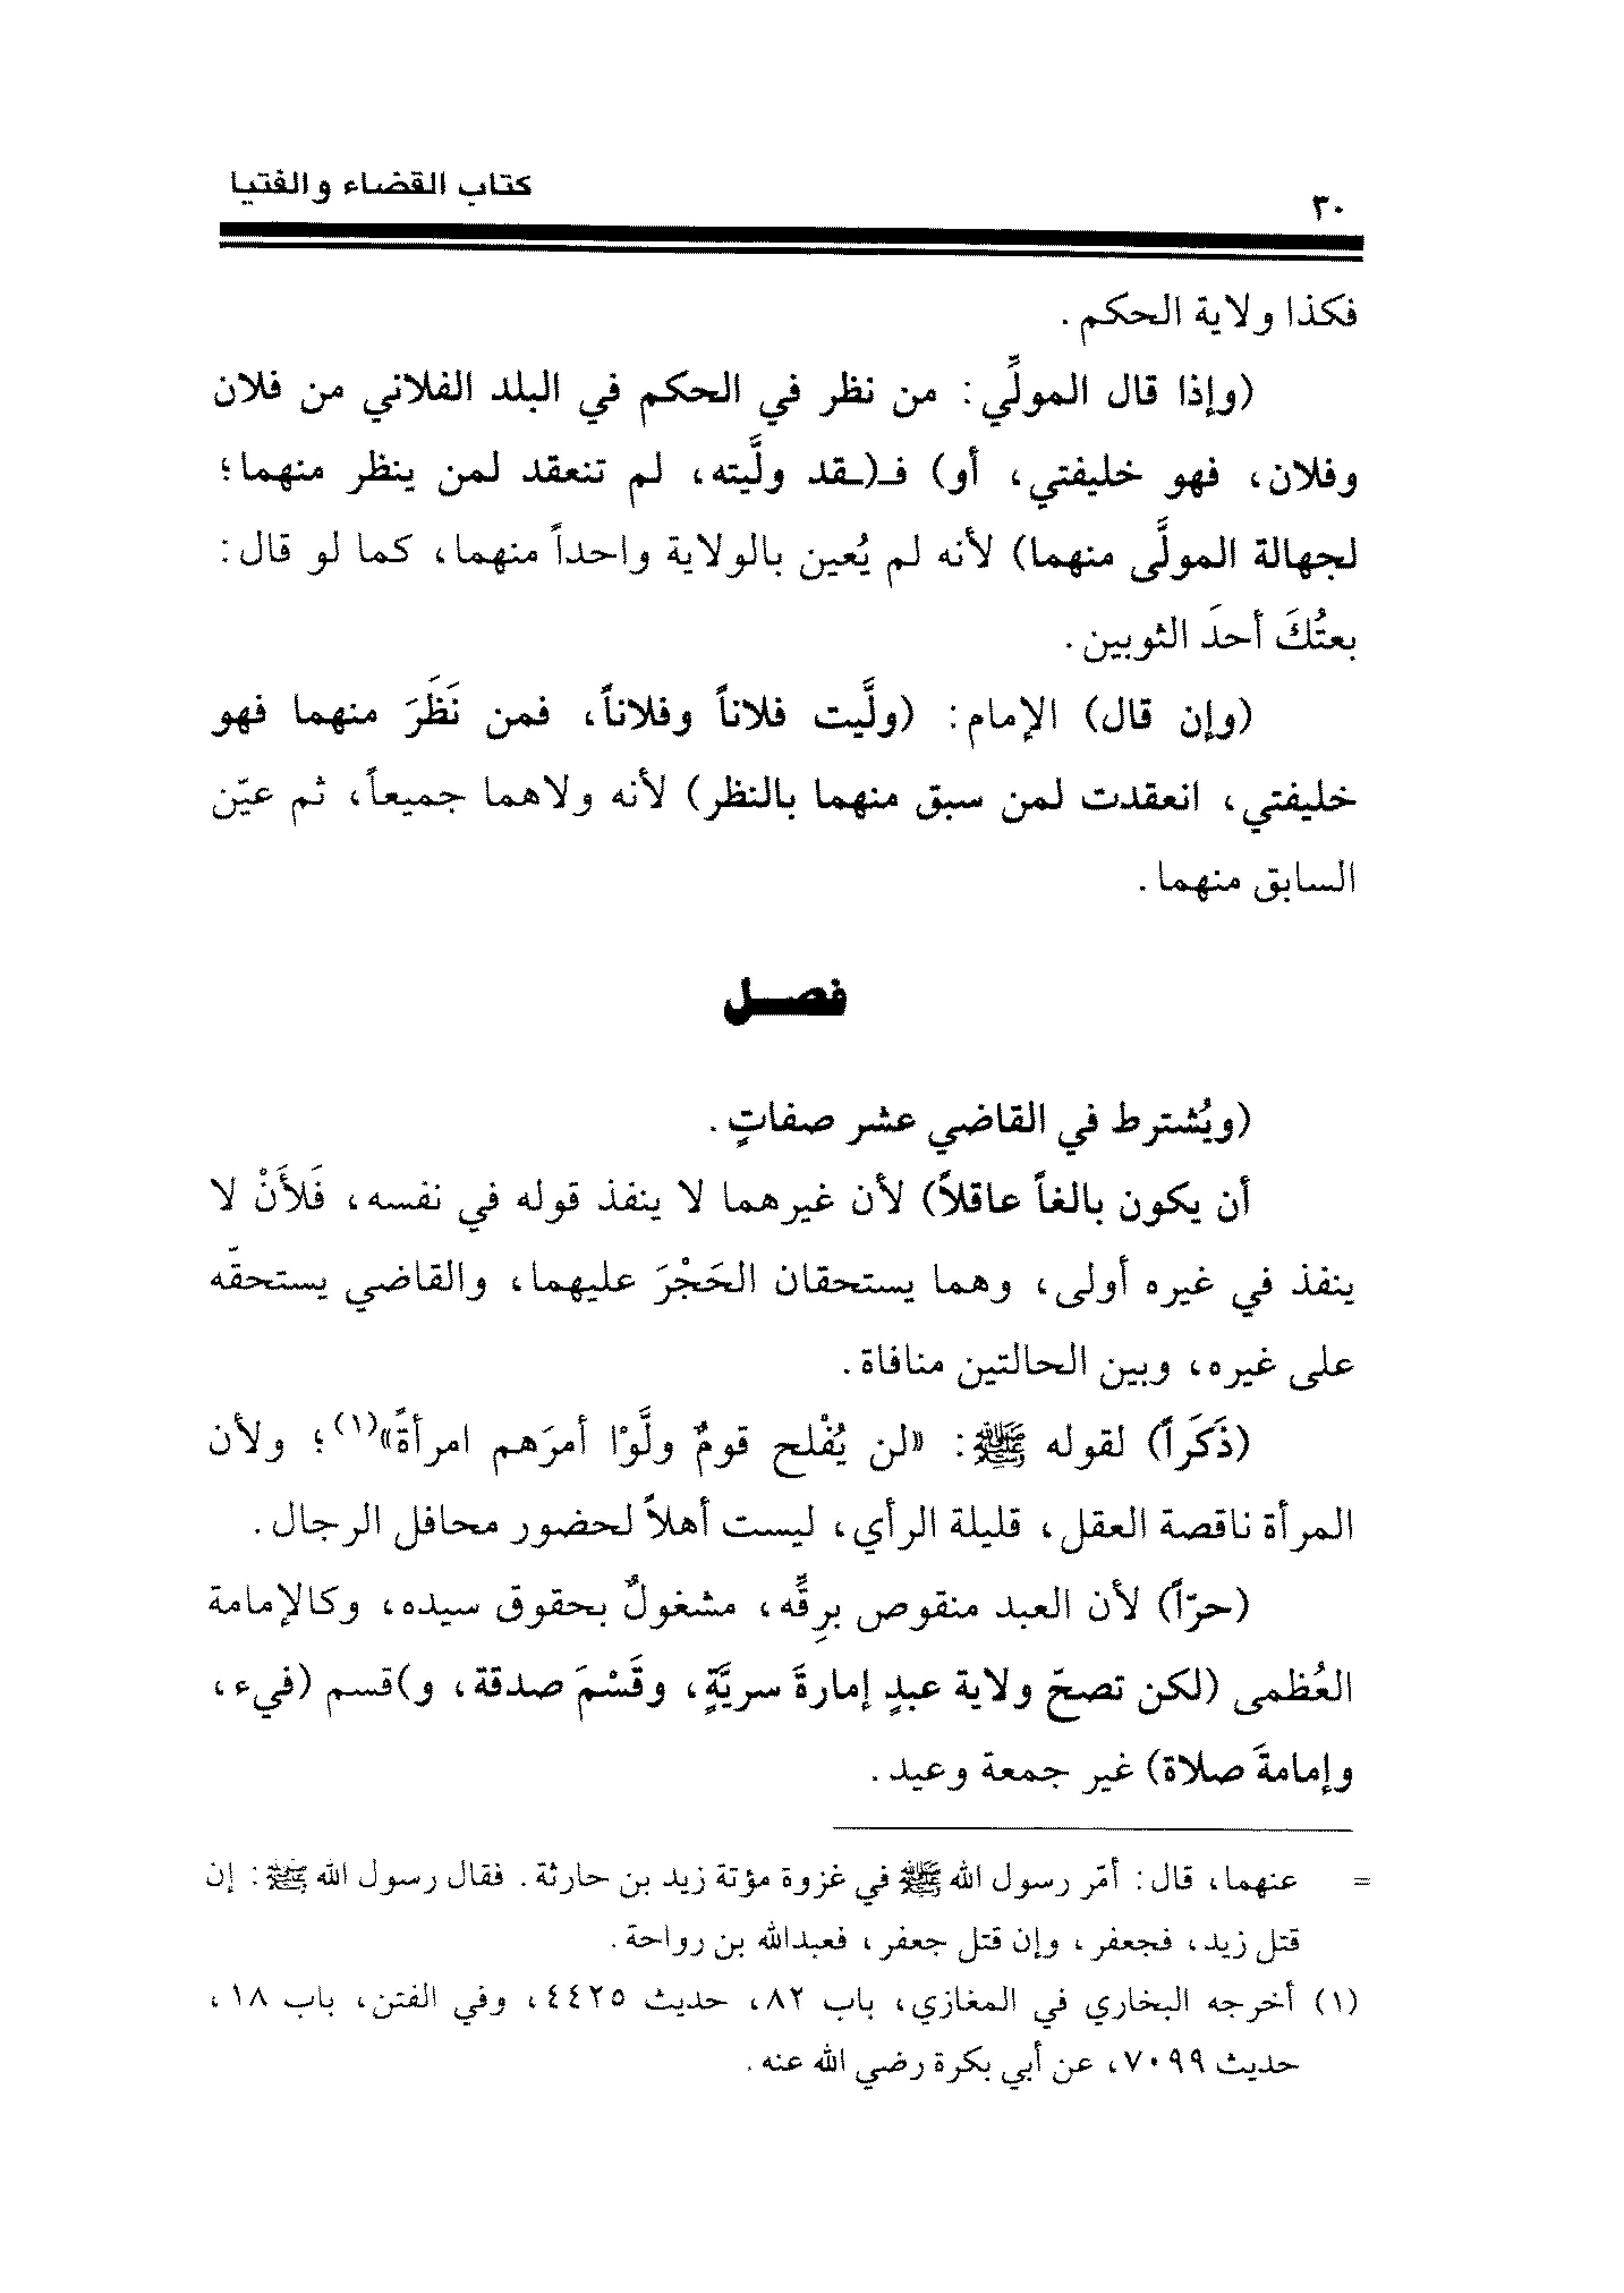 ٣٠
كتاب القضاء والفتيا
فكذا ولاية الحكم.
(وإذا قال المولِّي: من نظر في الحكم في البلد الفلاني من فلان
وفلان، فهو خليفتي، أو) فـ(ـقد ولَّيته، لم تنعقد لمن ينظر منهما؛
لجهالة المولَّى منهما) لأنه لم يُعين بالولاية واحداً منهما، كما لو قال:
بعتُكَ أحدَ الثوبين.
(وإن قال) الإمام: (ولَّيت فلاناً وفلاناً، فمن نَظَرَ منهما فهو
خليفتي، انعقدت لمن سبق منهما بالنظر) لأنه ولاهما جميعاً، ثم عيّن
السابق منهما.
فصـــل
(ويُشترط في القاضي عشر صفاتٍ.
أن يكون بالغاً عاقلاً) لأن غيرهما لا ينفذ قوله في نفسه، فَلأَنْ لا
ينفذ في غيره أولى، وهما يستحقان الحَجْرَ عليهما، والقاضي يستحقّه
على غيره، وبين الحالتين منافاة.
(ذَكَراً) لقوله ﷺ: «لن يُفْلح قومٌ ولَّوْا أمرَهم امرأةً»(١)؛ ولأن
المرأة ناقصة العقل، قليلة الرأي، ليست أهلاً لحضور محافل الرجال.
(حرّاً) لأن العبد منقوص برِقِّه، مشغولٌ بحقوق سيده، وكالإمامة
العُظمى (لكن تصحّ ولاية عبدٍ إمارةَ سريَّةٍ، وقَسْمَ صدقة، و)قسم (فيء،
وإمامةَ صلاة) غير جمعة وعيد.
= عنهما، قال: أمّر رسول الله ﷺ في غزوة مؤتة زيد بن حارثة. فقال رسول الله ﷺ: إن
قتل زيد، فجعفر، وإن قتل جعفر، فعبدالله بن رواحة.
(١) أخرجه البخاري في المغازي، باب ٨٢، حديث ٤٤٢٥، وفي الفتن، باب ١٨،
حديث ٧٠٩٩، عن أبي بكرة رضي الله عنه.